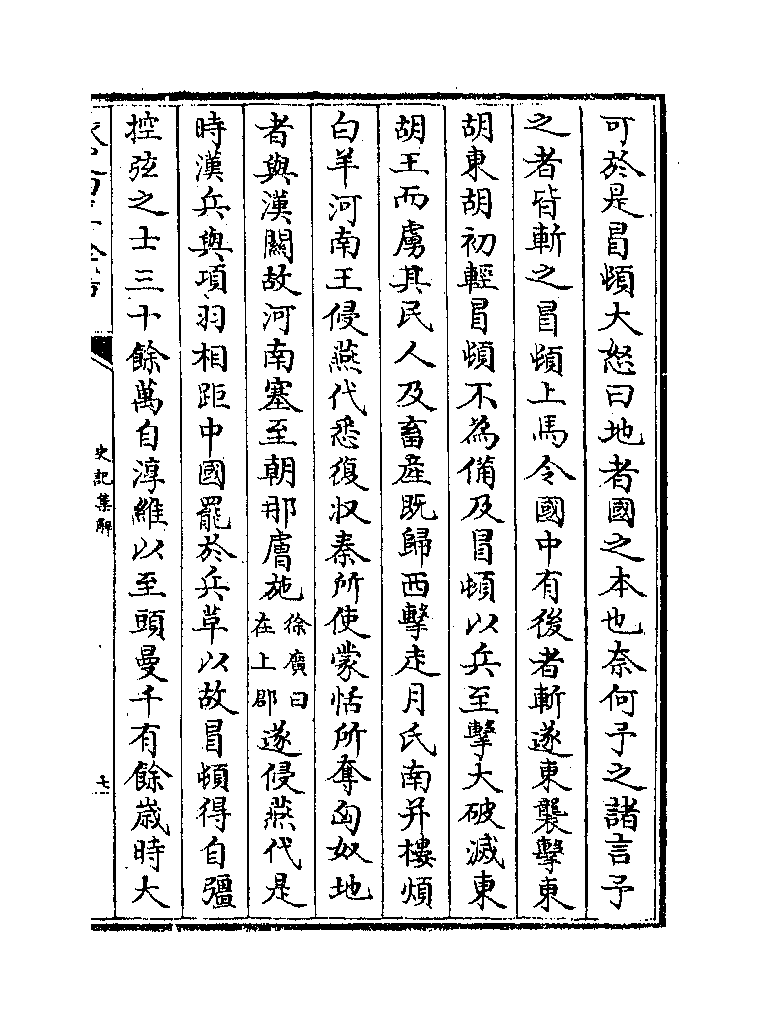 可於是冒頓大怒曰地者國之本也奈何予之諸言予
之者皆斬之冒頓上馬令國中有後者斬遂東襲擊東
胡東胡初輕冒頓不為備及冒頓以兵至擊大破滅東
胡王而虜其民人及畜産既歸西擊走月氏南并樓煩
白羊河南王侵燕代悉復收秦所使蒙恬所奪匈奴地
者與漢關故河南塞至朝那膚施徐廣曰在上郡遂侵燕代是
時漢兵與項羽相距中國罷於兵草以故冒頓得自彊
控弦之士三十餘萬自淳維以至頭曼千有餘嵗時大
史記集解
七